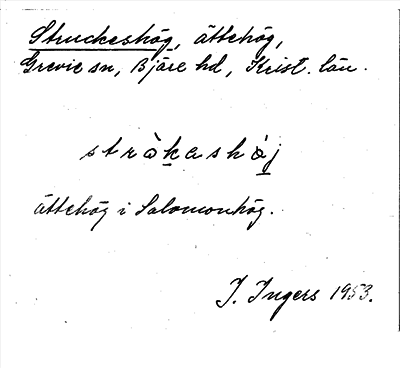 Struckeshög, ättehög,
Grevie sn, Bjäre hd, Krist. län.
stràkasháj
ättehög i Salomonhög.
I. Ingers 1953.